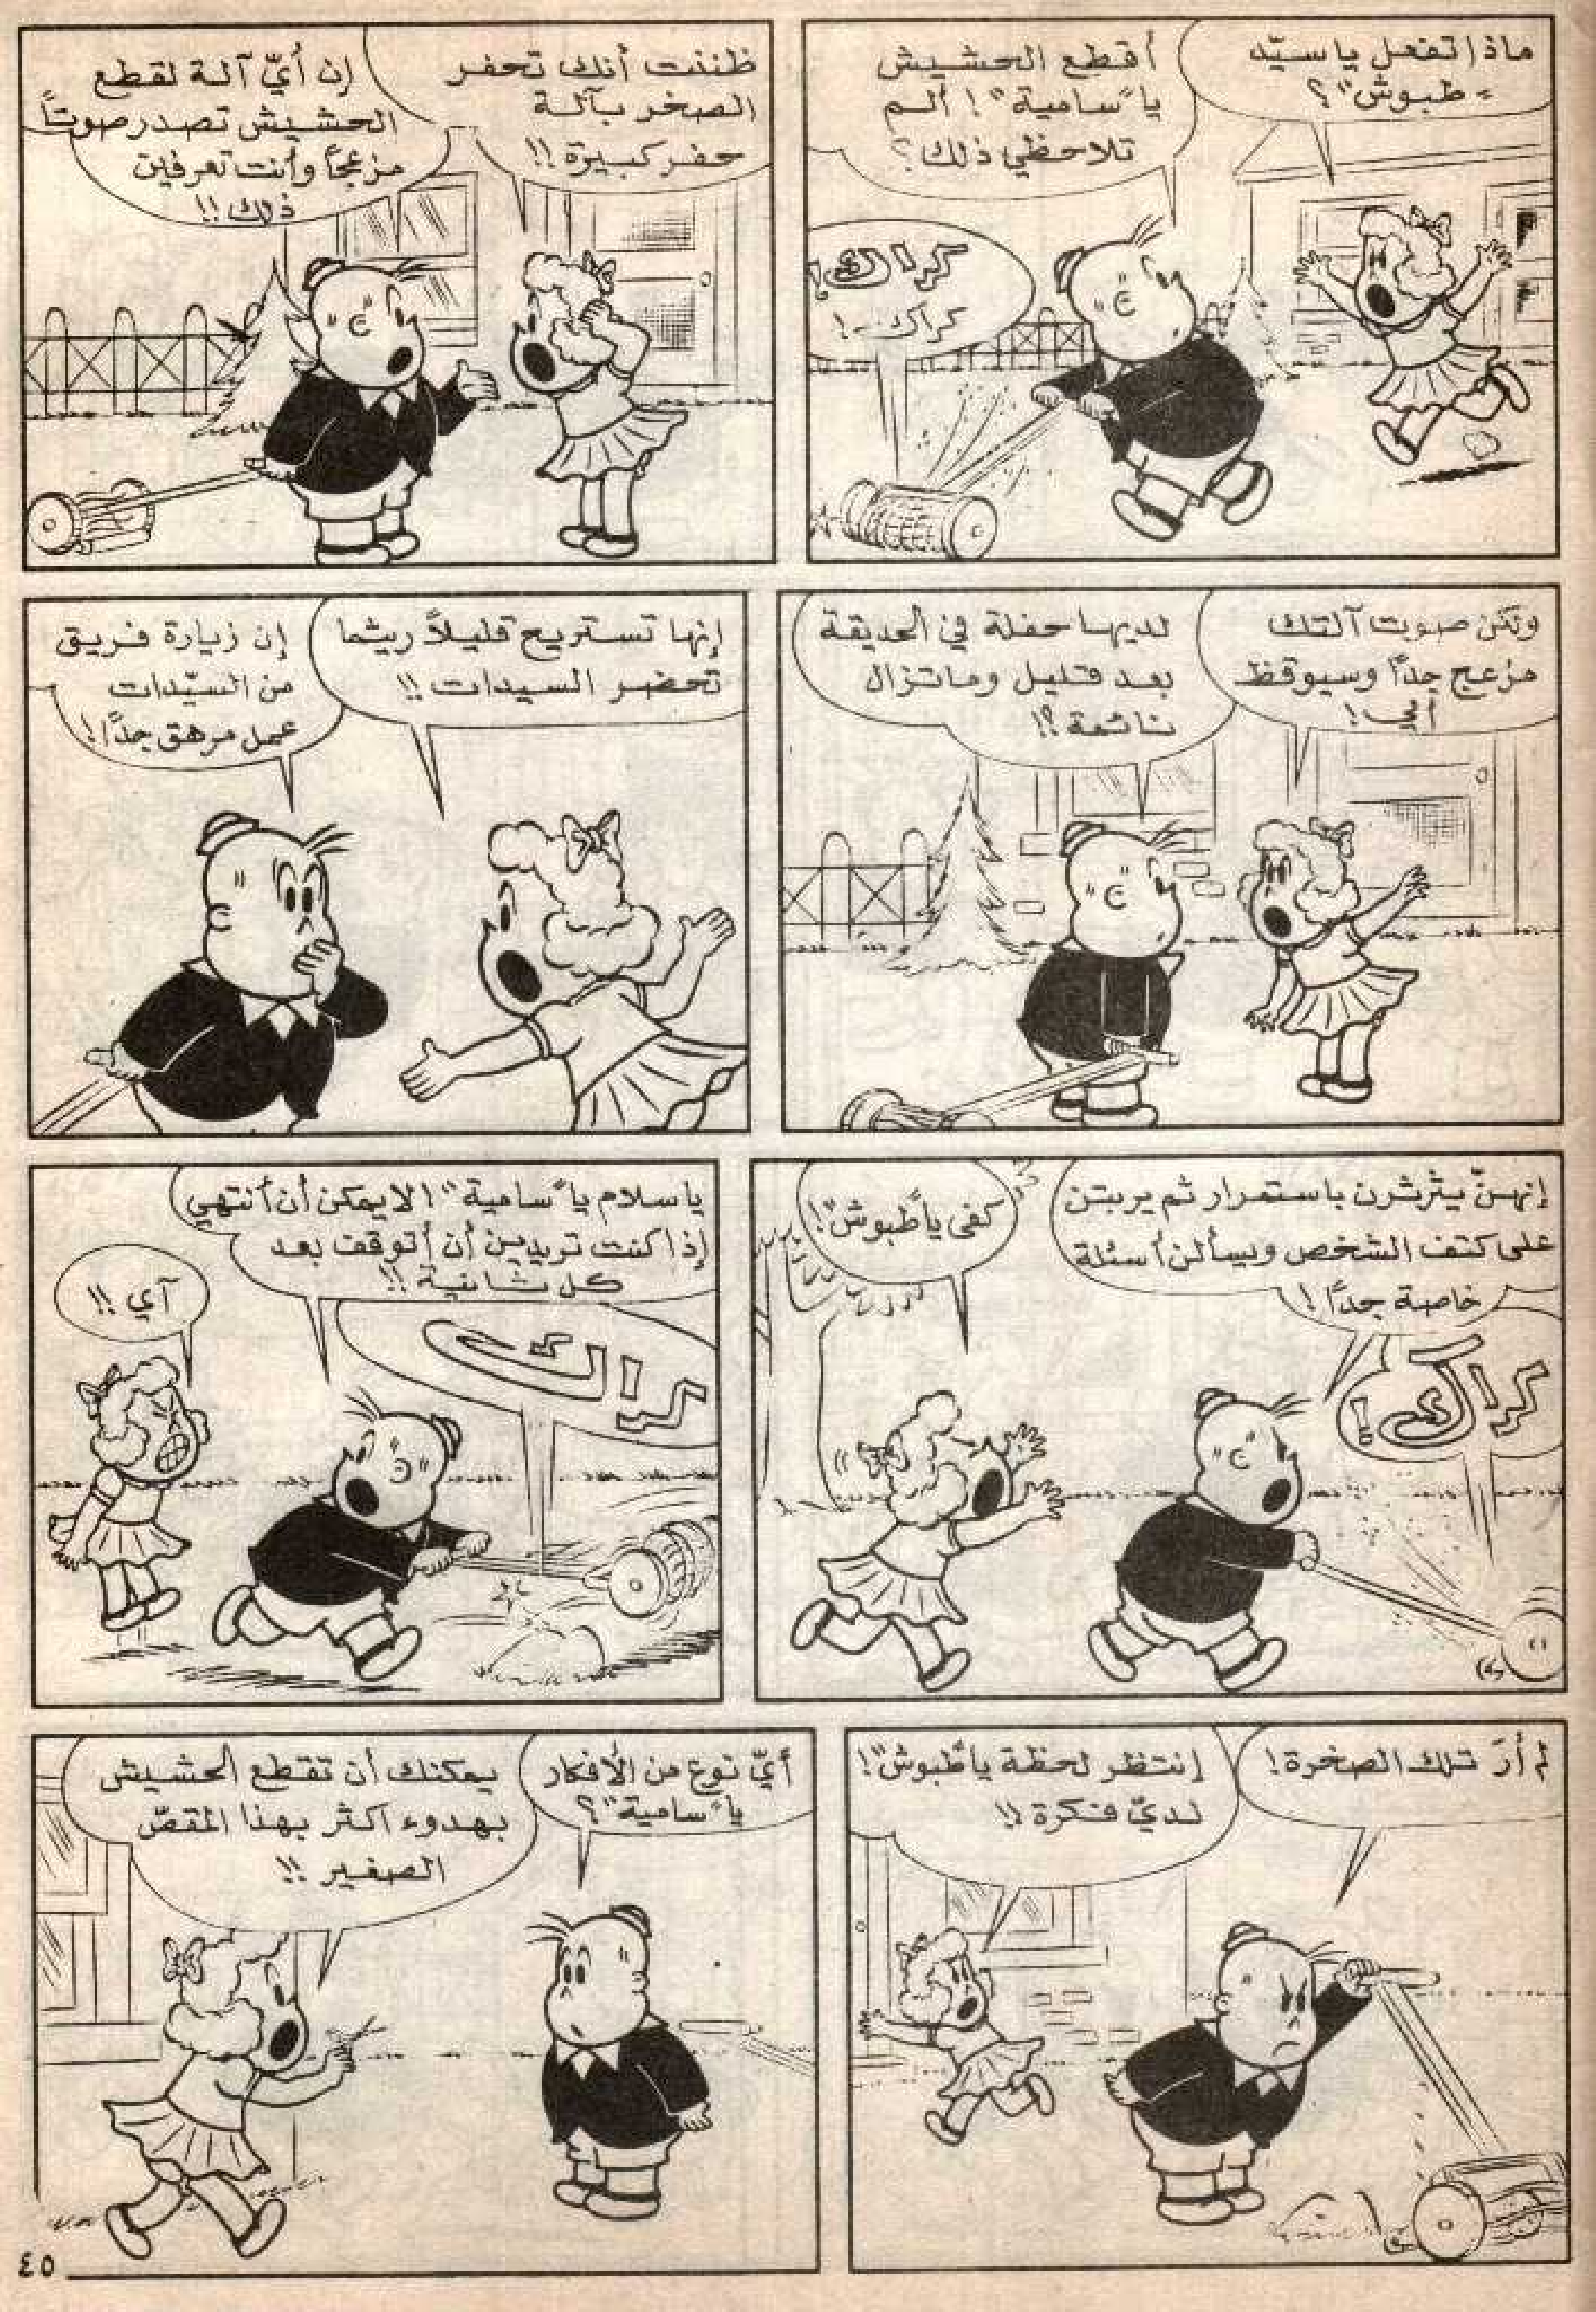 ماذا تفعل يا سيّد
"طبوش"؟
أقطع الحشيش
يا "سامية"! ألم
تلاحظي ذلك؟
كراك!
كراك..!
ظننت أنك تحفر
الصخر بآلة
حفر كبيرة!!
إن أيّ آلة لقطع
الحشيش تصدر صوتاً
مزعجاً وأنت تعرفين
ذلك!!
ولكن صوت آلتك
مزعج جدّاً وسيوقظ
أمي!
لديها حفلة في الحديقة
بعد قليل وماتزال
نائمة؟!
إنها تستريح قليلاً ريثما
تحضر السيدات!!
إن زيارة فريق
من السيّدات
عمل مرهق جدّاً!
إنهنّ يثرثرن باستمرار ثم يربتن
على كتف الشخص ويسألن أسئلة
خاصة جدّاً!
كراك!
كفى يا "طبوش"!
يا سلام يا "سامية"! لا يمكن أن أنتهي
إذا كنت تريدين أن أتوقف بعد
كل ثانية!!
كراك
آي!!
لم أرَ تلك الصخرة!
إنتظر لحظة يا "طبوش"!
لديّ فكرة!!
أيّ نوع من الأفكار
يا "سامية"؟
يمكنك أن تقطع الحشيش
بهدوء اكثر بهذا المقصّ
الصغير!!
٤٥